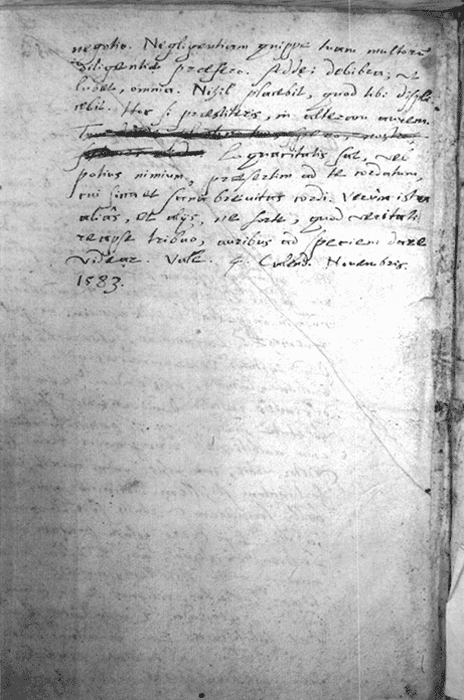 negotio. Negligentiam quippe tuam multorũ
diligentiæ præfero. Addes, delibera, ut
lubet, omnia. Nihil placebit, quod tibi displi
cebit. Hoc si præstiteris, in alteram aurem.
Loquacitatis sat, vel
potius nimium, præsertim ad te cordatum,
cui sincera brevitas cordi. Verùm ista
aliàs, et aliis, ne forte, quod veritati
reapse tribuo, auribus ad speciem dare
videar. Vale. 4. Calend. Novembris.
1583.